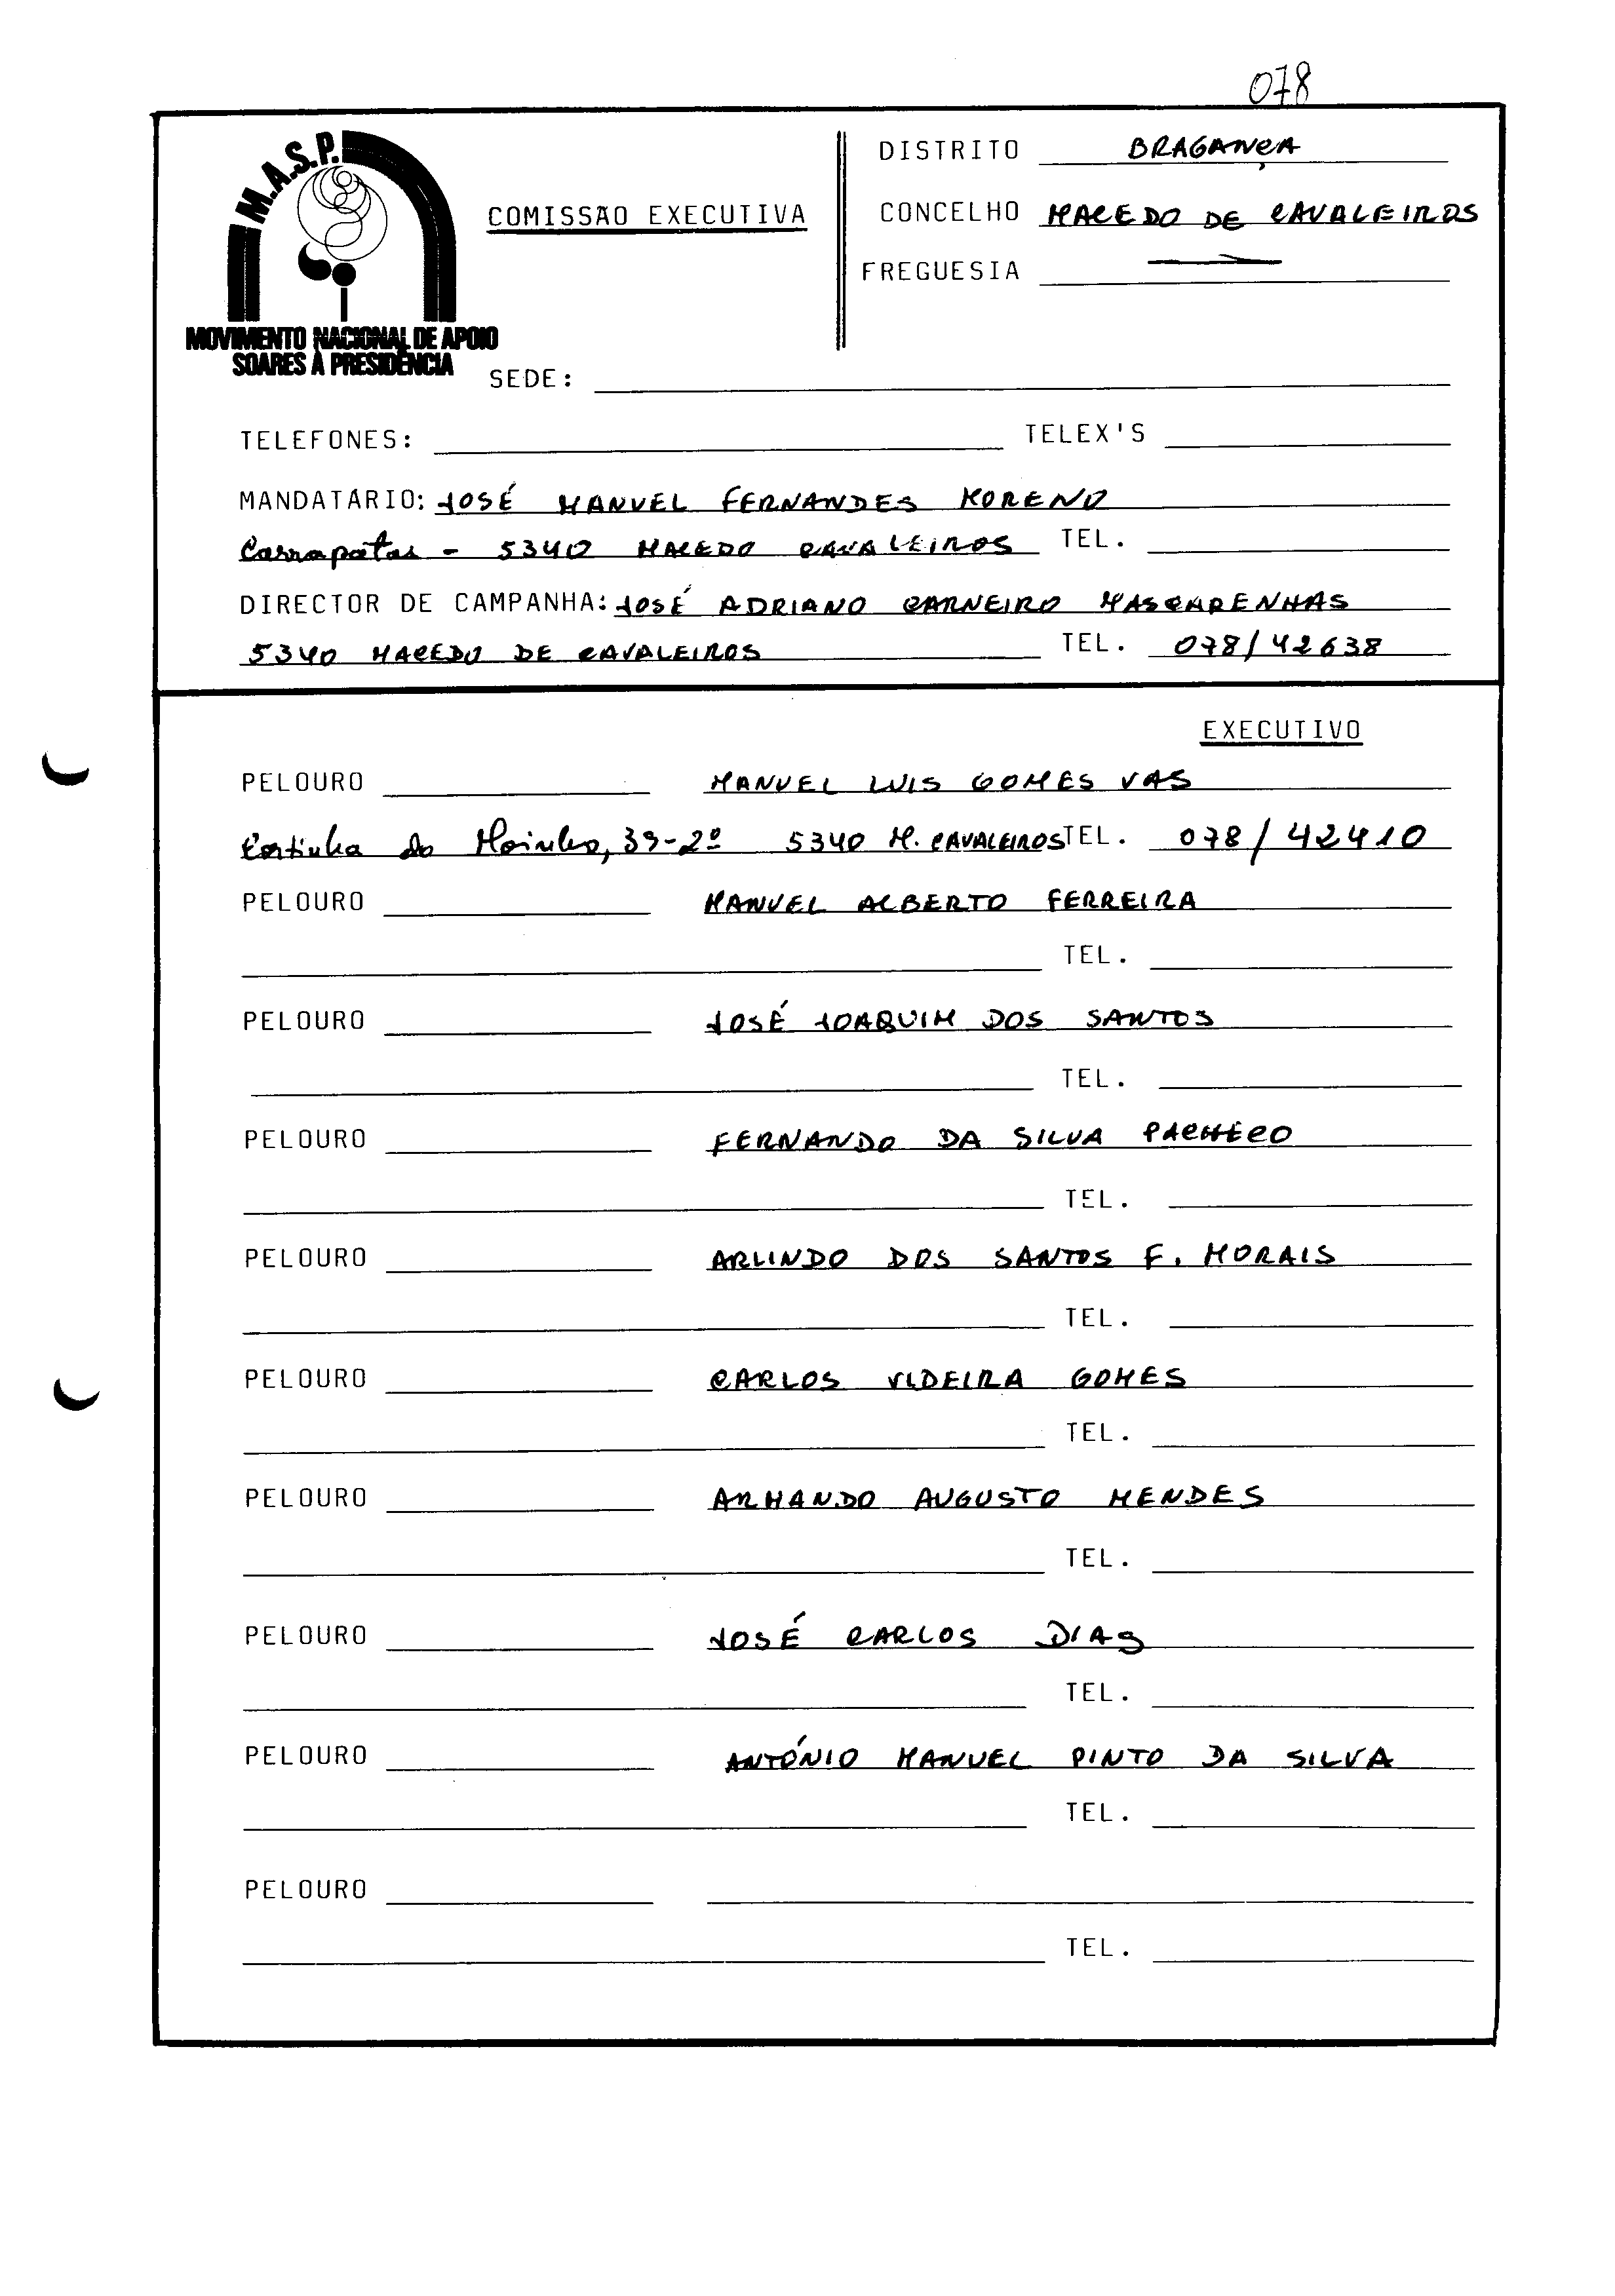 078
M.A.S.P.
MOVIMENTO NACIONAL DE APOIO
SOARES À PRESIDÊNCIA
COMISSÃO EXECUTIVA
DISTRITO BRAGANÇA
CONCELHO MACEDO DE CAVALEIROS
FREGUESIA
SEDE:
TELEFONES: TELEX'S
MANDATÁRIO: JOSÉ MANUEL FERNANDES MORENO
Carrapatas - 5340 MACEDO CAVALEIROS TEL.
DIRECTOR DE CAMPANHA: JOSÉ ADRIANO CARNEIRO MASCARENHAS
5340 MACEDO DE CAVALEIROS TEL. 078/42638
EXECUTIVO
PELOURO MANUEL LUIS GOMES VAS
Cortinha do Moinho, 39-2º 5340 M. CAVALEIROS TEL. 078/42410
PELOURO MANUEL ALBERTO FERREIRA
TEL.
PELOURO JOSÉ JOAQUIM DOS SANTOS
TEL.
PELOURO FERNANDO DA SILVA PACHECO
TEL.
PELOURO ARLINDO DOS SANTOS F. MORAIS
TEL.
PELOURO CARLOS VIDEIRA GOMES
TEL.
PELOURO ARMANDO AUGUSTO MENDES
TEL.
PELOURO JOSÉ CARLOS DIAS
TEL.
PELOURO ANTÓNIO MANUEL PINTO DA SILVA
TEL.
PELOURO
TEL.